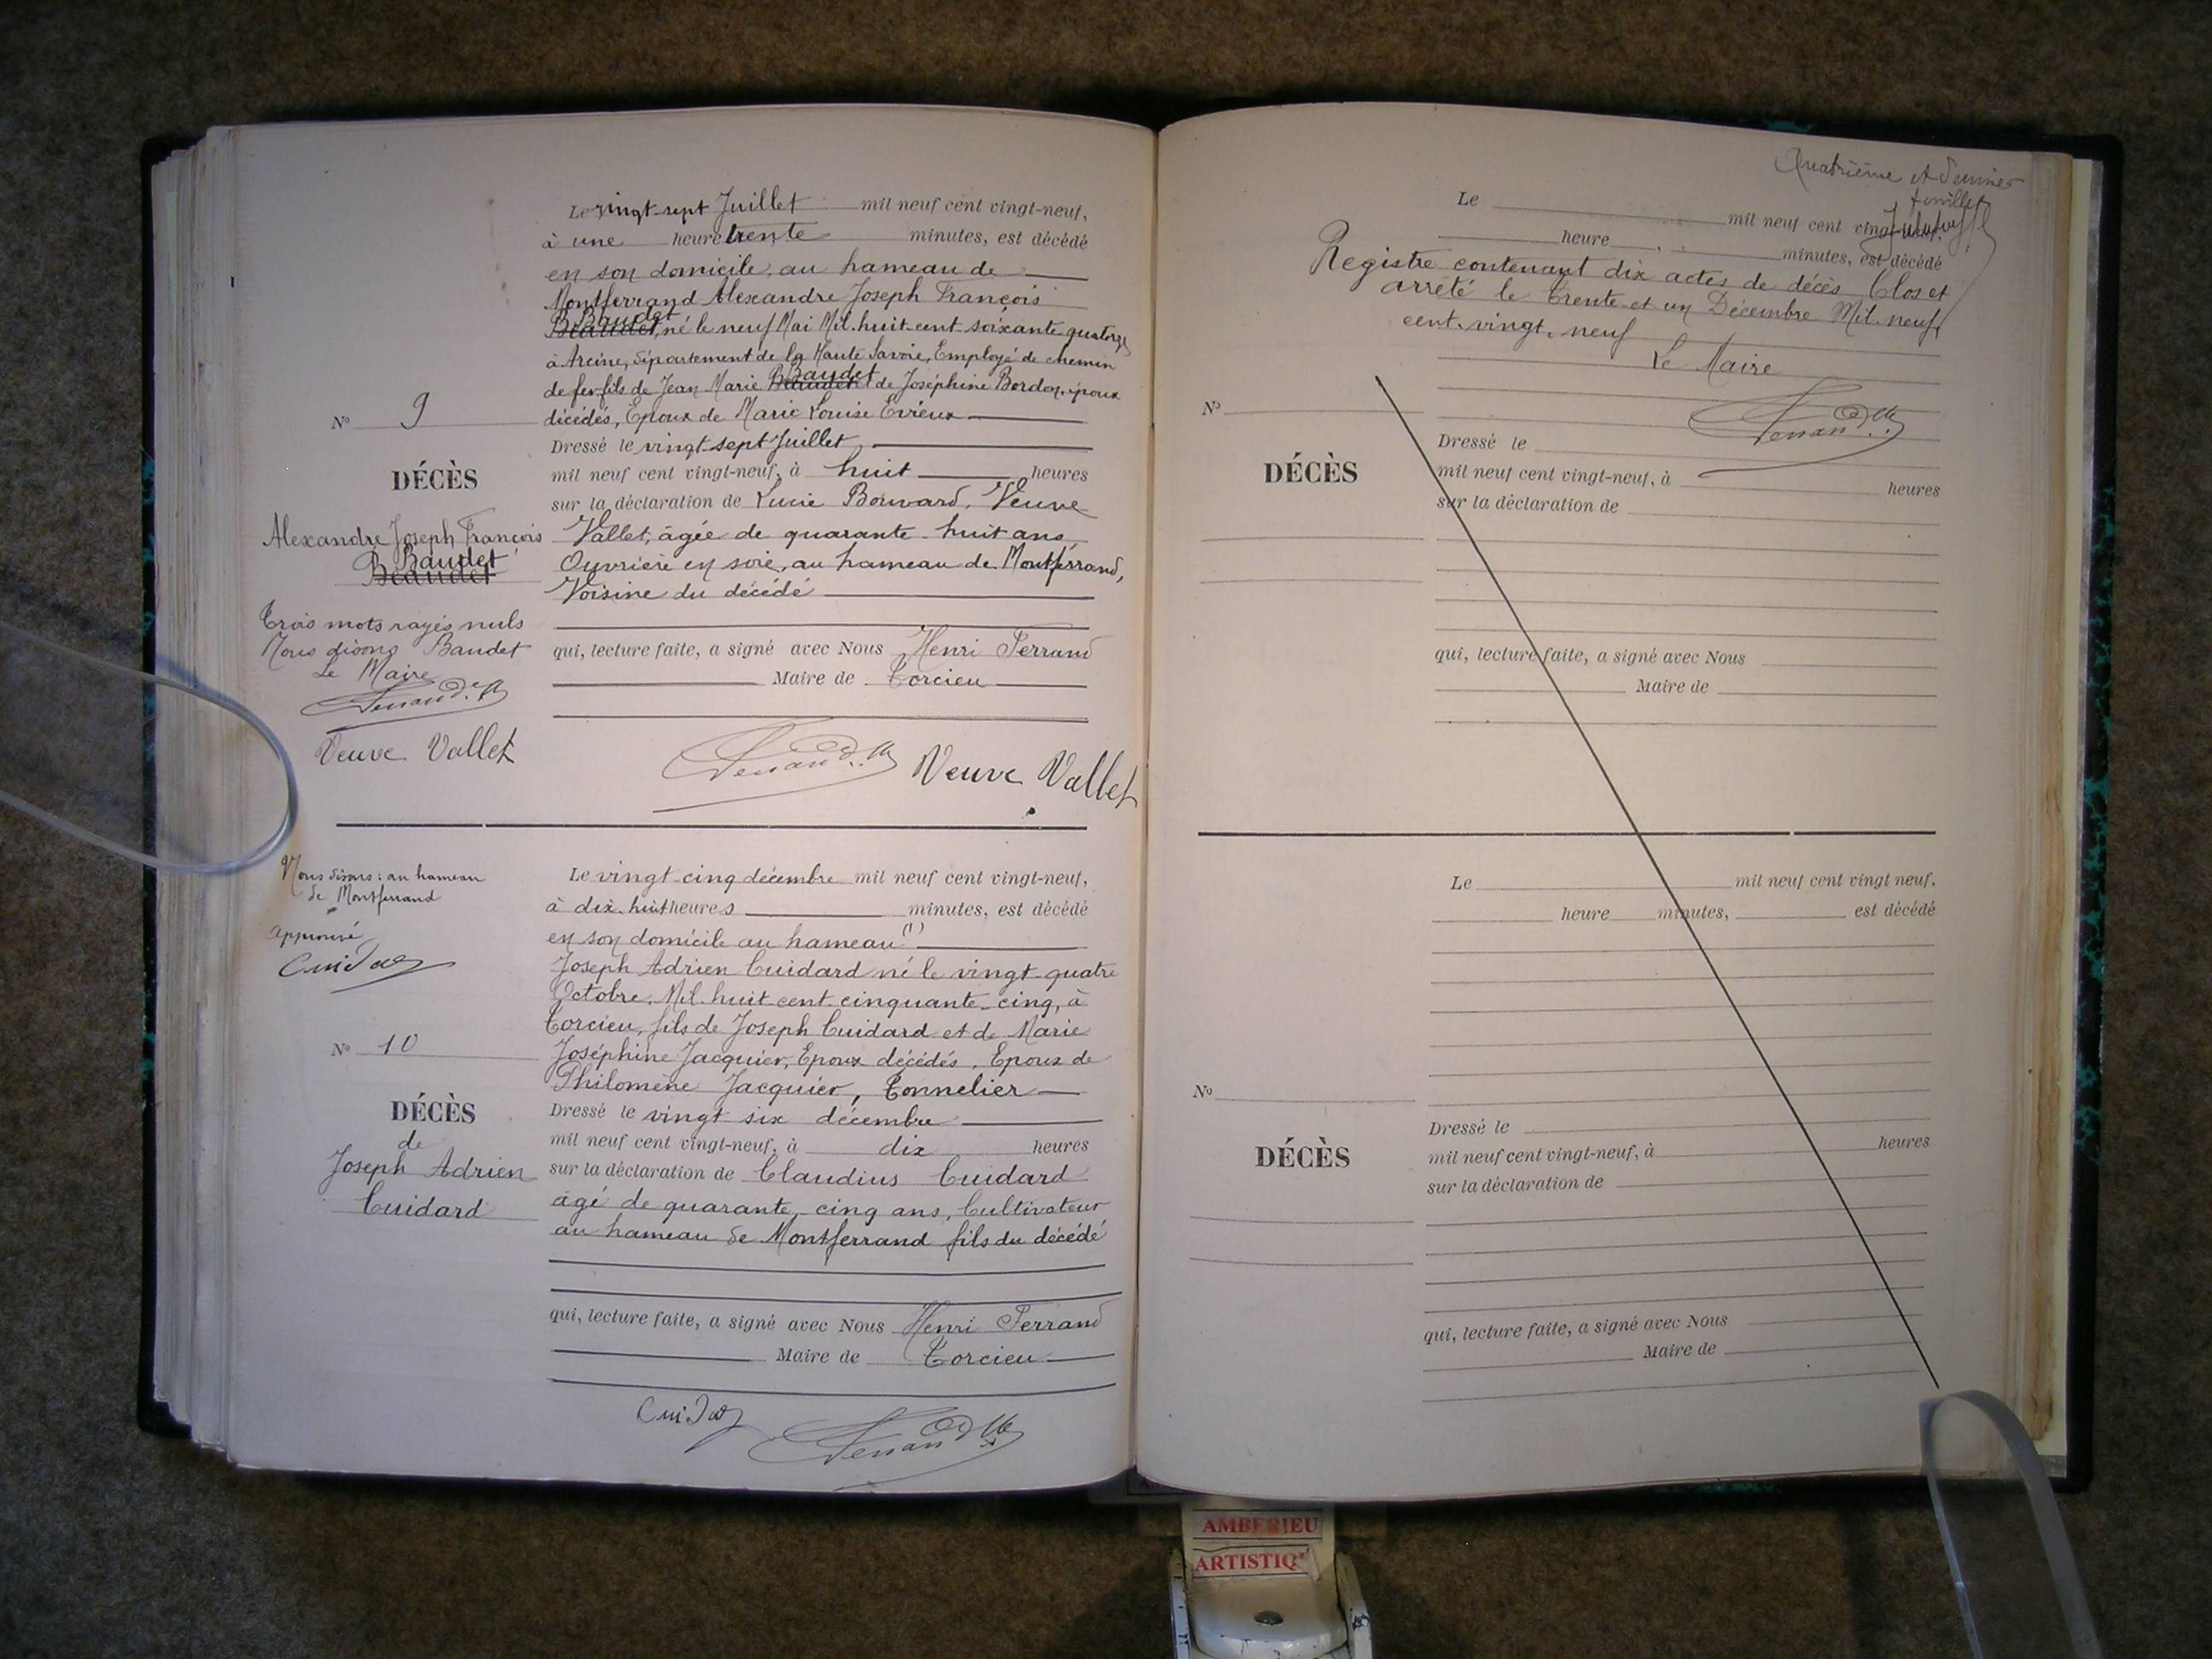 Le vingt-sept Juillet mil neuf cent vingt-neuf,
à une heure trente minutes, est décédé
en son domicile, au hameau de
Montferrand Alexandre Joseph François
Baudet
Beaudet, né le neuf Mai Mil huit cent soixante quatorze
à Arcine, département de la Haute Savoie, Employé de chemin
de fer fils de Jean Marie Beaudet Baudet et de Joséphine Bordon, époux
décédés, Epoux de Marie Louise Evrieux
Dressé le vingt sept Juillet
mil neuf cent vingt-neuf, à huit heures
sur la déclaration de Lucie Bouvard, Veuve
Vallet, âgée de quarante huit ans,
Ouvrière en soie, au hameau de Montferrand,
Voisine du décédé
qui, lecture faite, a signé avec Nous Henri Ferrand
Maire de Torcieu
Ferrand
Veuve Vallet
N° 9
DÉCÈS
Alexandre Joseph François
Baudet
Beaudet
Trois mots rayés nuls
Nous disons Baudet
Le Maire
Ferrand
Veuve Vallet
Nous disons : au hameau
de Montferrand
approuvé
Cuidard
N° 10
DÉCÈS
de
Joseph Adrien
Cuidard
Le vingt-cinq décembre mil neuf cent vingt-neuf,
à dix-huit heures minutes, est décédé
en son domicile au hameau (1)
Joseph Adrien Cuidard né le vingt-quatre
Octobre, Mil huit cent cinquante-cinq, à
Torcieu, fils de Joseph Cuidard et de Marie
Joséphine Jacquier, Epoux décédés, Epoux de
Philomène Jacquier, Tonnelier
Dressé le vingt six décembre
mil neuf cent vingt-neuf, à dix heures
sur la déclaration de Claudius Cuidard
âgé de quarante-cinq ans, Cultivateur
au hameau de Montferrand fils du décédé
qui, lecture faite, a signé avec Nous Henri Ferrand
Maire de Torcieu
Cuidard
Ferrand
Quatrième et dernier
feuillet
Le mil neuf cent vingt-neuf,
heure minutes, est décédé
Registre contenant dix actes de décès Clos et
arrêté le trente et un Décembre Mil neuf
cent vingt-neuf
Le Maire
Ferrand
N°
DÉCÈS
Dressé le
mil neuf cent vingt-neuf, à heures
sur la déclaration de
qui, lecture faite, a signé avec Nous
Maire de
Le mil neuf cent vingt neuf.
heure minutes, est décédé
N°
DÉCÈS
Dressé le
mil neuf cent vingt-neuf, à heures
sur la déclaration de
qui, lecture faite, a signé avec Nous
Maire de
AMBERIEU
ARTISTIQ